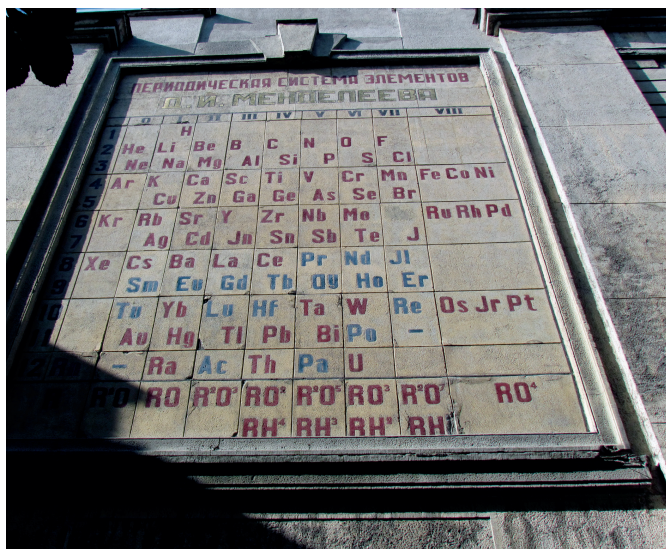 ПЕРИОДИЧЕСКАЯ СИСТЕМА ЭЛЕМЕНТОВ
Д. И. МЕНДЕЛЕЕВА
0 I II III IV V VI VII VIII
1 H
2 He Li Be B C N O F
3 Ne Na Mg Al Si P S Cl
4 Ar K Ca Sc Ti V Cr Mn Fe Co Ni
5 Cu Zn Ga Ge As Se Br
6 Kr Rb Sr Y Zr Nb Mo Ru Rh Pd
7 Ag Cd Jn Sn Sb Te J
8 Xe Cs Ba La Ce Pr Nd Jl
9 Sm Eu Gd Tb Dy Ho Er
10 Tu Yb Lu Hf Ta W Re Os Jr Pt
Au Hg Tl Pb Bi Po –
– Ra Ac Th Pa U
R²O RO R²O³ RO² R²O⁵ RO³ R²O⁷ RO⁴
RH⁴ RH³ RH² RH